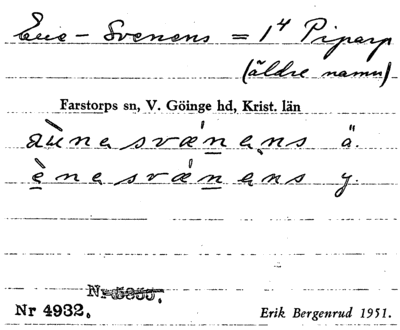 Ene-Svenens = 1⁴ Piparp
(äldre namn)
Farstorps sn, V. Göinge hd, Krist. län
àunesvǽnens ä.
ènesvǽnens y.
Nr 4932. Erik Bergenrud 1951.